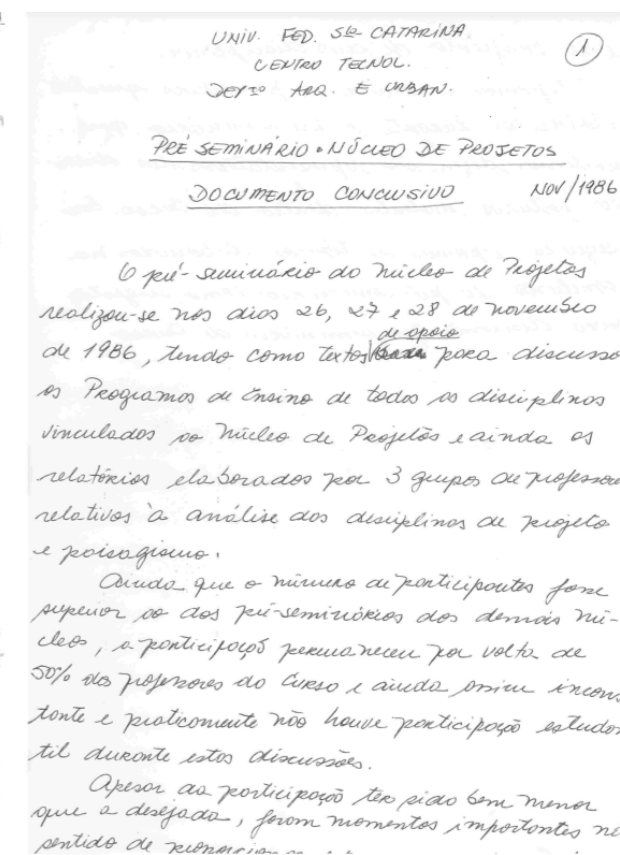 UNIV. FED. Sta CATARINA
CENTRO TECNOL.
DEPTO ARQ. E URBAN.
1.
PRÉ SEMINÁRIO • NÚCLEO DE PROJETOS
DOCUMENTO CONCLUSIVO NOV/1986
O pré-seminário do Núcleo de Projetos
realizou-se nos dias 26, 27 e 28 de novembro
de apoio
de 1986, tendo como textos para discussã
os Programas de Ensino de todas as disciplinas
vinculadas ao Núcleo de Projetos e ainda os
relatórios elaborados por 3 grupos de professor
relativos à análise das disciplinas de projeto
e paisagismo.
Ainda que o número de participantes fosse
superior ao dos pré-seminários dos demais nú-
cleos, a participação permaneceu por volta de
50% dos professores do Curso e ainda assim incons
tante e praticamente não houve participação estudan
til durante estas discussões.
Apesar da participação ter sido bem menor
que a desejada, foram momentos importantes no
sentido de